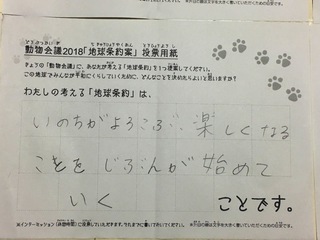 動物会議2018「地球条約案」投票用紙
きょうの「動物会議」に、あなたが考える「地球条約」を1つ提案してください。
この地球でみんなが平和にくらしていくために、どんなことを決めたらよいと思いますか?
わたしの考える「地球条約」は、
いのちがよろこぶ、楽しくなる
ことを じぶんが 始めて
いく
ことです。